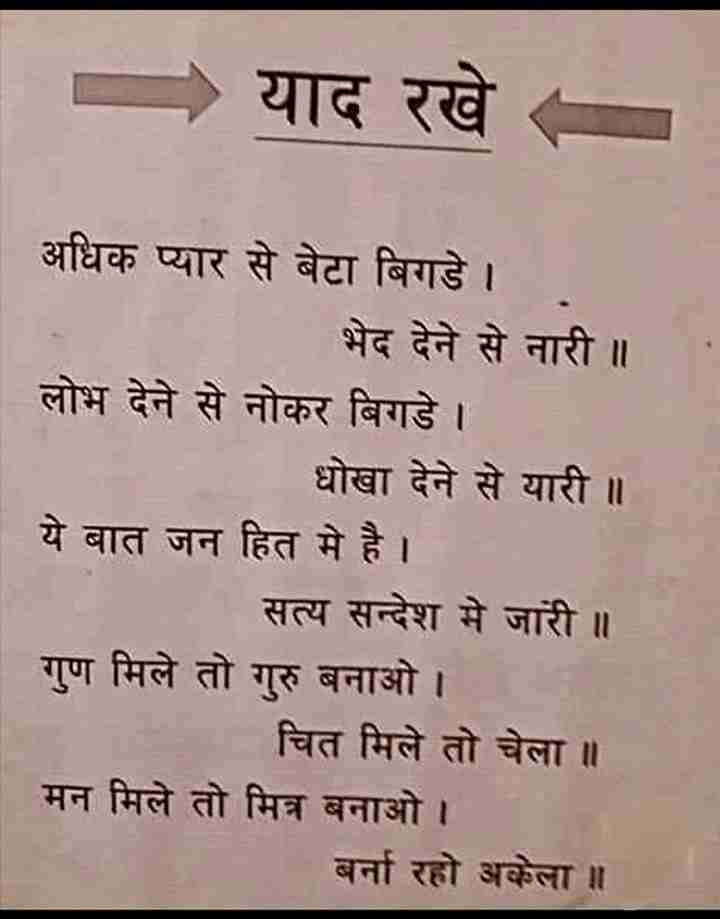 याद रखे
अधिक प्यार से बेटा बिगडे ।
भेद देने से नारी ॥
लोभ देने से नोकर बिगडे ।
धोखा देने से यारी ॥
ये बात जन हित मे है ।
सत्य सन्देश मे जारी ॥
गुण मिले तो गुरु बनाओ ।
चित मिले तो चेला ॥
मन मिले तो मित्र बनाओ ।
बर्ना रहो अकेला ॥